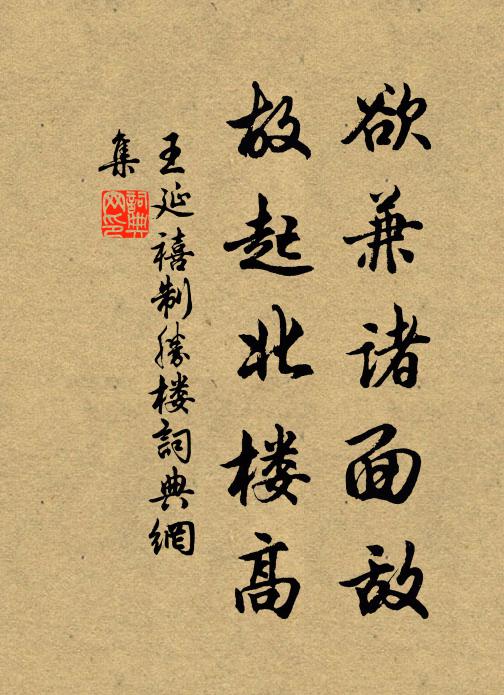 欲兼诸面敌
故起北楼高
王延禧制胜楼詞典網
集
詞典网印